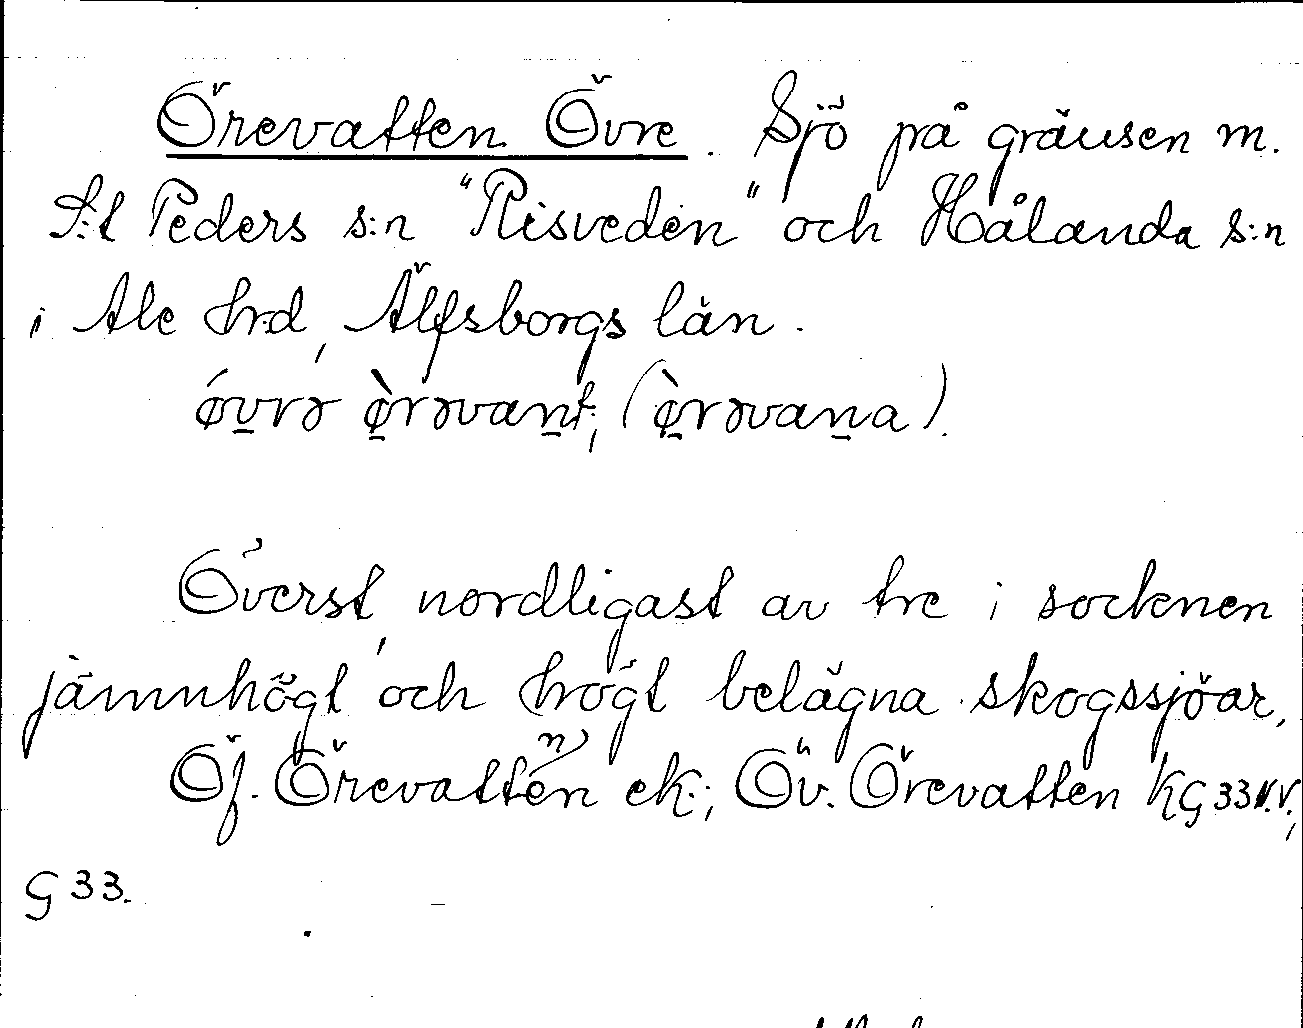 Örevatten Övre. Sjö på gränsen m.
S:t Peders s:n "Risveden" och Hålanda s:n
i Ale hrd, Älfsborgs län.
ǿvrə ø̀rəvant, (ø̀rəvana).
Överst, nordligast av tre i socknen
jämnhögt och högt belägna skogssjöar.
Öf. Örevatten ek.; Öv. Örevatten KG 33 N.V.,
G 33.